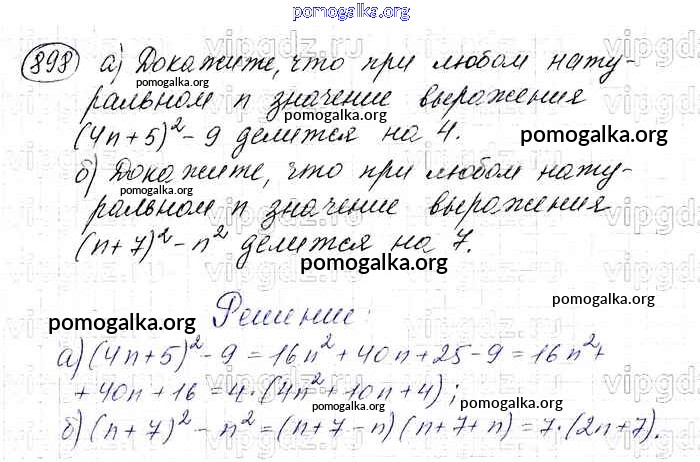 pomogalka.org
898 а) Докажите, что при любом нату-
pomogalka.org
ральном n значение выражения
pomogalka.org
(4n+5)² - 9 делится на 4.
pomogalka.org
б) Докажите, что при любом нату-
pomogalka.org
ральном n значение выражения
(n+7)² - n² делится на 7.
pomogalka.org
pomogalka.org
Решение:
pomogalka.org
а) (4n+5)² - 9 = 16n² + 40n + 25 - 9 = 16n² +
+ 40n + 16 = 4·(4n² + 10n + 4);
pomogalka.org
pomogalka.org
б) (n+7)² - n² = (n+7-n)(n+7+n) = 7·(2n+7).
pomogalka.org